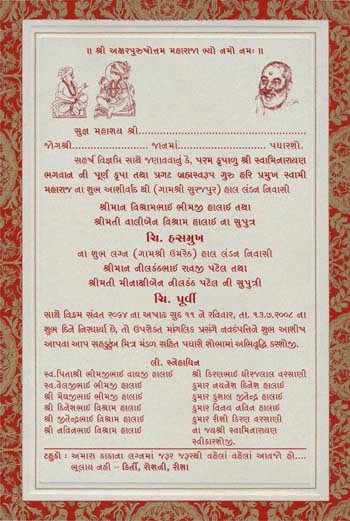 ॥ શ્રી અક્ષરપુરુષોત્તમ મહારાજા ભ્યો નમો નમઃ ॥
સુજ્ઞ મહાશય શ્રી.......................................................
જોગશ્રી.................. જાનમાં.................. પધારશો.
સહર્ષ વિજ્ઞપ્તિ સાથે જણાવવાનું કે, પરમ કૃપાળુ શ્રી સ્વામિનારાયણ
ભગવાન ની પૂર્ણ કૃપા તથા પ્રગટ બ્રહ્મસ્વરૂપ ગુરુ હરિ પ્રમુખ સ્વામી
મહારાજ ના શુભ આશીર્વાદ થી (ગામશ્રી સુરજપુર) હાલ લંડન નિવાસી
શ્રીમાન વિશ્રામભાઈ ભીમજી હાલાઈ તથા
શ્રીમતી વાલીબેન વિશ્રામ હાલાઈ ના સુપુત્ર
ચિ. હસમુખ
ના શુભ લગ્ન (ગામશ્રી ઉમરેઠ) હાલ લંડન નિવાસી
શ્રીમાન નીલકંઠભાઈ રાવજી પટેલ તથા
શ્રીમતી મીનાક્ષીબેન નીલકંઠ પટેલ ની સુપુત્રી
ચિ. પૂર્વી
સાથે વિક્રમ સંવત ૨૦૬૪ ના અષાઢ સુદ ૧૧ ને રવિવાર, તા. ૧૩.૭.૨૦૦૮ ના
શુભ દિને નિરધાર્યા છે, તો ઉપરોક્ત માંગલિક પ્રસંગે નવદંપતિને શુભ આશીષ
આપવા આપ સહકુટુંબ મિત્ર મંડળ સહિત પધારી શોભામાં અભિવૃદ્ધિ કરશોજી.
લી. સ્નેહાધિન
સ્વ.પિતાશ્રી ભીમજીભાઈ વાઘજી હાલાઈ
સ્વ.વેલજીભાઈ ભીમજી હાલાઈ
શ્રી મેઘજીભાઈ ભીમજી હાલાઈ
શ્રી દિનેશભાઈ વિશ્રામ હાલાઈ
શ્રી જીતેન્દ્રભાઈ વિશ્રામ હાલાઈ
શ્રી નવિનભાઈ વિશ્રામ હાલાઈ
શ્રી કિરણભાઈ ધીરજલાલ વરસાણી
કુમાર નયનેશ દિનેશ હાલાઈ
કુમાર કુશાલ જીતેન્દ્ર હાલાઈ
કુમાર વિનય નવિન હાલાઈ
કુમાર રીશી કિરણ વરસાણી
ના જયશ્રી સ્વામિનારાયણ
સ્વીકારશોજી.
ટહુકો : અમારા કાકાના લગ્નમાં જરૂર જરૂરથી વહેલાં વહેલાં આવજો હો....
ભૂલાય નહી – કિર્તી, રોશની, રીશા